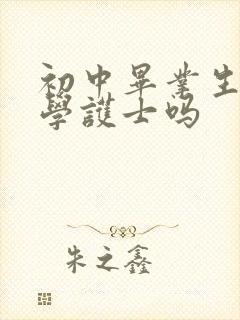 初中畢業生
學護士吗
朱之鑫